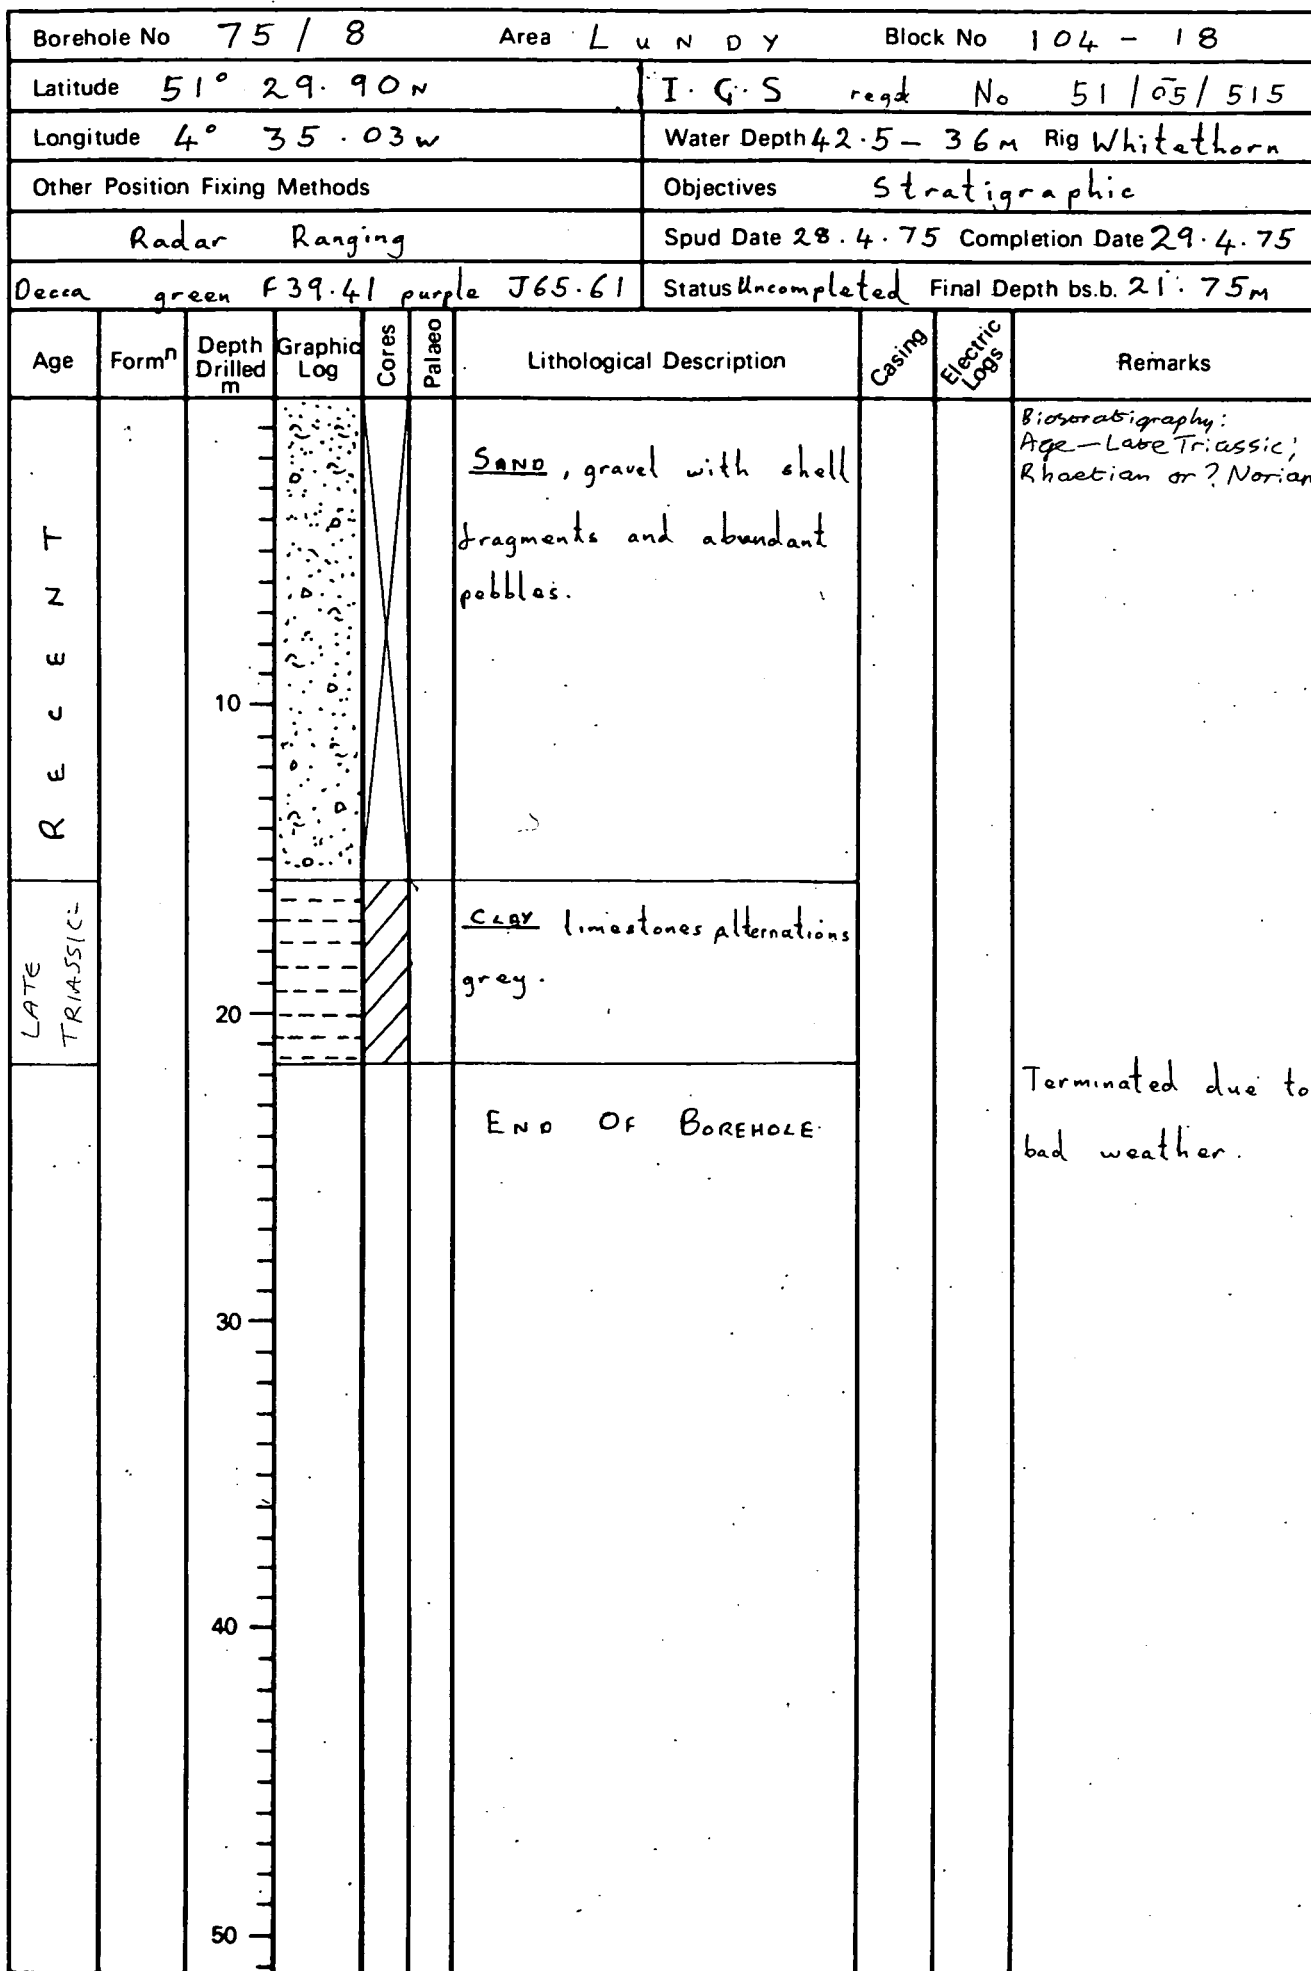 Borehole No 75 / 8 Area LUNDY Block No 104 - 18
Latitude 51° 29.90 N I.G.S regd No 51/05/515
Longitude 4° 35.03 W Water Depth 42.5 – 36 M Rig Whitethorn
Other Position Fixing Methods Objectives Stratigraphic
Radar Ranging Spud Date 28.4.75 Completion Date 29.4.75
Decca green F39.41 purple J65.61 Status Uncompleted Final Depth bs.b. 21.75 M
Age Formn Depth Drilled m Graphic Log Cores Palaeo Lithological Description Casing Electric Logs Remarks
Biostratigraphy:
Age – Late Triassic;
Rhaetian or ? Norian
RECENT
SAND, gravel with shell
fragments and abundant
pebbles.
10
LATE
TRIASSIC
CLAY limestones alternations
grey.
20
END OF BOREHOLE
Terminated due to
bad weather.
30
40
50